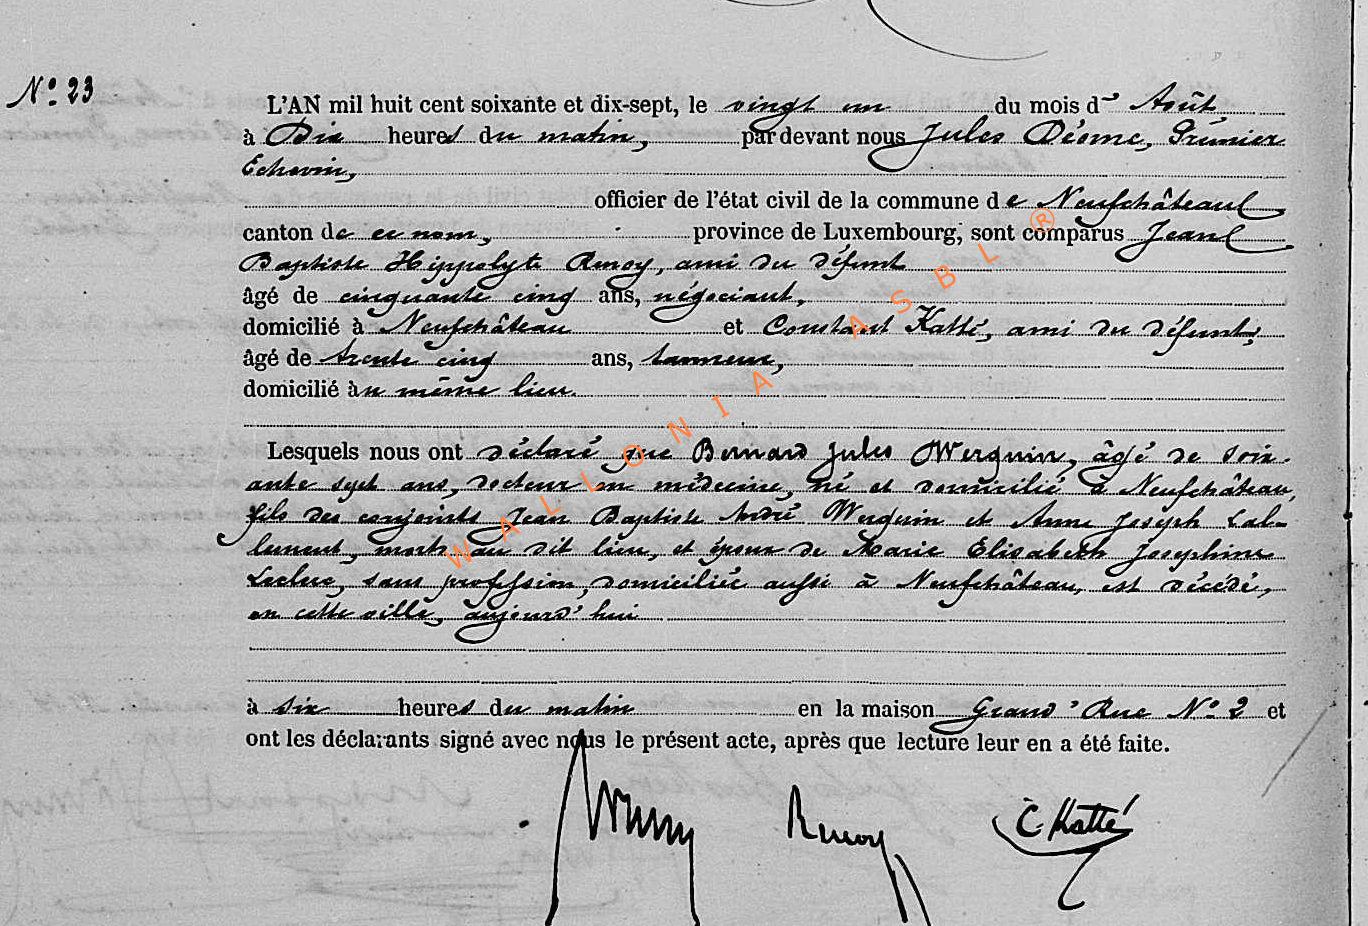 N° 23
L'AN mil huit cent soixante et dix-sept, le vingt un du mois d' Août
à Dix heures du matin, par devant nous Jules Déome, Prémier
Echevin,
officier de l'état civil de la commune de Neufchâteau
canton de ce nom, province de Luxembourg, sont comparus Jean
Baptiste Hippolyte Renoy, ami du défunt
âgé de cinquante cinq ans, négociant,
domicilié à Neufchâteau et Constant Katté, ami du défunt,
âgé de trente cinq ans, tanneur,
domicilié au même lieu.
Lesquels nous ont déclaré que Bernard Jules Werquin, âgé de soix-
ante sept ans, docteur en médecine, né et domicilié à Neufchâteau,
fils des conjoints Jean Baptiste André Werquin et Anne Joseph Lal-
lement, morts au dit lieu, et époux de Marie Elisabeth Josephine
Leclerc, sans profession, domiciliée aussi à Neufchâteau, est décédé,
en cette ville, aujourd'hui
à six heures du matin en la maison Grand'Rue N° 2 et
ont les déclarants signé avec nous le présent acte, après que lecture leur en a été faite.
Renoy C Katté
WALLONIA ASBL ®